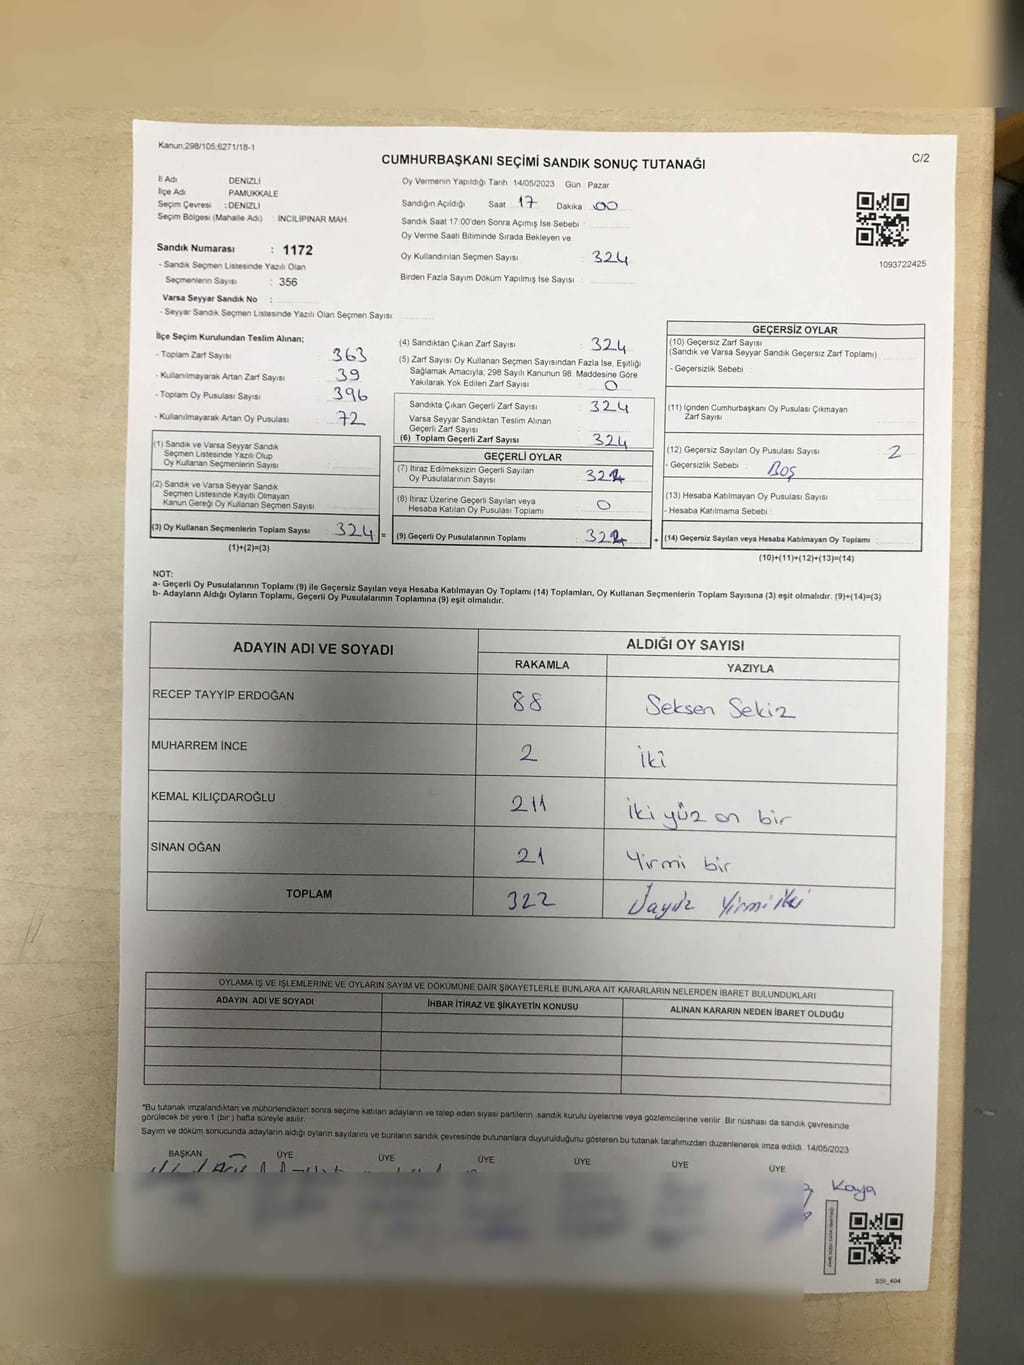 Kanun,298/105,6271/18-1
CUMHURBAŞKANI SEÇİMİ SANDIK SONUÇ TUTANAĞI
C/2
İl Adı DENİZLİ
İlçe Adı PAMUKKALE
Seçim Çevresi : DENİZLİ
Seçim Bölgesi (Mahalle Adı) : İNCİLİPINAR MAH.
Sandık Numarası : 1172
- Sandık Seçmen Listesinde Yazılı Olan
Seçmenlerin Sayısı : 356
Varsa Seyyar Sandık No :
- Seyyar Sandık Seçmen Listesinde Yazılı Olan Seçmen Sayısı
Oy Vermenin Yapıldığı Tarih 14/05/2023 Gün : Pazar
Sandığın Açıldığı Saat 17 Dakika 00
Sandık Saat 17:00'den Sonra Açımış İse Sebebi :
Oy Verme Saati Bitiminde Sırada Bekleyen ve
Oy Kullandırılan Seçmen Sayısı : 324
Birden Fazla Sayım Döküm Yapılmış İse Sayısı :
1093722425
İlçe Seçim Kurulundan Teslim Alınan;
- Toplam Zarf Sayısı 363
- Kullanılmayarak Artan Zarf Sayısı 39
- Toplam Oy Pusulası Sayısı 396
- Kullanılmayarak Artan Oy Pusulası 72
(1) Sandık ve Varsa Seyyar Sandık
Seçmen Listesinde Yazılı Olup
Oy Kullanan Seçmenlerin Sayısı
(2) Sandık ve Varsa Seyyar Sandık
Seçmen Listesinde Kayıtlı Olmayan
Kanun Gereği Oy Kullanan Seçmen Sayısı
(3) Oy Kullanan Seçmenlerin Toplam Sayısı 324 =
(1)+(2)=(3)
(4) Sandıktan Çıkan Zarf Sayısı : 324
(5) Zarf Sayısı Oy Kullanan Seçmen Sayısından Fazla İse, Eşitliği
Sağlamak Amacıyla, 298 Sayılı Kanunun 98. Maddesine Göre
Yakılarak Yok Edilen Zarf Sayısı 0
Sandıkta Çıkan Geçerli Zarf Sayısı : 324
Varsa Seyyar Sandıktan Teslim Alınan
Geçerli Zarf Sayısı
(6) Toplam Geçerli Zarf Sayısı 324
GEÇERLİ OYLAR
(7) İtiraz Edilmeksizin Geçerli Sayılan
Oy Pusulalarının Sayısı : 322
(8) İtiraz Üzerine Geçerli Sayılan veya
Hesaba Katılan Oy Pusulası Toplamı 0
(9) Geçerli Oy Pusulalarının Toplamı : 322 +
GEÇERSİZ OYLAR
(10) Geçersiz Zarf Sayısı
(Sandık ve Varsa Seyyar Sandık Geçersiz Zarf Toplamı)
- Geçersizlik Sebebi :
(11) İçinden Cumhurbaşkanı Oy Pusulası Çıkmayan
Zarf Sayısı
(12) Geçersiz Sayılan Oy Pusulası Sayısı 2
- Geçersizlik Sebebi : Boş
(13) Hesaba Katılmayan Oy Pusulası Sayısı
- Hesaba Katılmama Sebebi
(14) Geçersiz Sayılan veya Hesaba Katılmayan Oy Toplamı :
(10)+(11)+(12)+(13)=(14)
NOT:
a- Geçerli Oy Pusulalarının Toplamı (9) ile Geçersiz Sayılan veya Hesaba Katılmayan Oy Toplamı (14) Toplamları, Oy Kullanan Seçmenlerin Toplam Sayısına (3) eşit olmalıdır. (9)+(14)=(3)
b- Adayların Aldığı Oyların Toplamı, Geçerli Oy Pusulalarının Toplamına (9) eşit olmalıdır.
ADAYIN ADI VE SOYADI ALDIĞI OY SAYISI
RAKAMLA YAZIYLA
RECEP TAYYİP ERDOĞAN 88 Seksen Sekiz
MUHARREM İNCE 2 iki
KEMAL KILIÇDAROĞLU 211 iki yüz on bir
SİNAN OĞAN 21 Yirmi bir
TOPLAM 322 Üçyüz Yirmi iki
OYLAMA İŞ VE İŞLEMLERİNE VE OYLARIN SAYIM VE DÖKÜMÜNE DAİR ŞİKAYETLERLE BUNLARA AİT KARARLARIN NELERDEN İBARET BULUNDUKLARI
ADAYIN ADI VE SOYADI İHBAR İTİRAZ VE ŞİKAYETİN KONUSU ALINAN KARARIN NEDEN İBARET OLDUĞU
*Bu tutanak imzalandıktan ve mühürlendikten sonra seçime katılan adayların ve talep eden siyasi partilerin sandık kurulu üyelerine veya gözlemcilerine verilir. Bir nüshası da sandık çevresinde
görülecek bir yere 1 (bir) hafta süreyle asılır.
Sayım ve döküm sonucunda adayların aldığı oyların sayılarını ve bunların sandık çevresinde bulunanlara duyurulduğunu gösteren bu tutanak tarafımızdan düzenlenerek imza edildi. 14/05/2023
BAŞKAN ÜYE ÜYE ÜYE ÜYE ÜYE ÜYE
Kaya
SSI_404